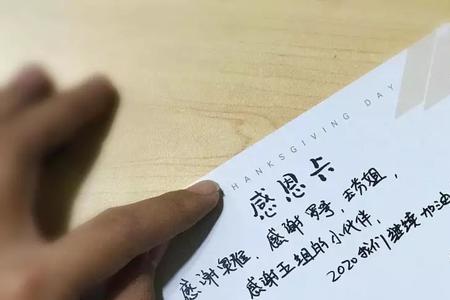 HANKSGIVING DAY
感恩卡
感谢 感谢 组，
感谢五组的小伙伴，
2020我们继续加油